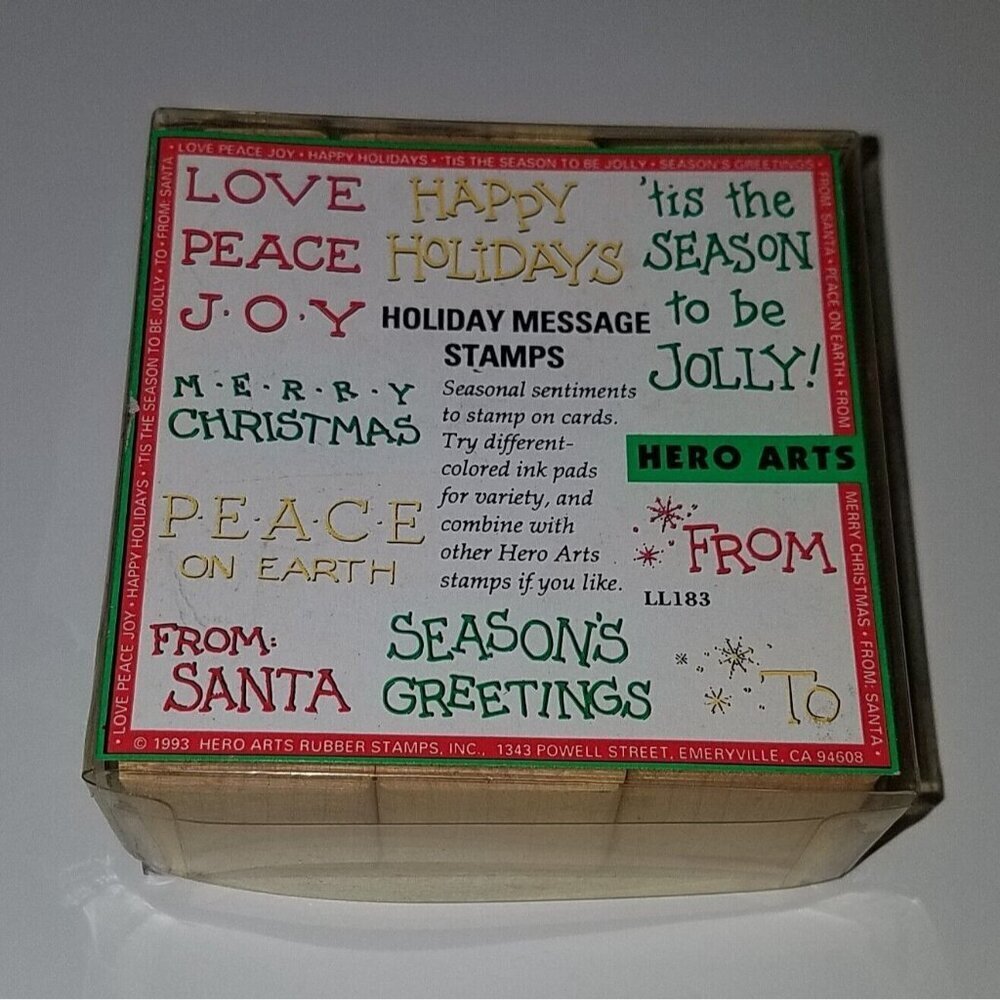 LOVE PEACE JOY • HAPPY HOLIDAYS • 'TIS THE SEASON TO BE JOLLY • SEASON'S GREETINGS
FROM: SANTA • PEACE ON EARTH • FROM
MERRY CHRISTMAS • FROM: SANTA
LOVE PEACE JOY • HAPPY HOLIDAYS • 'TIS THE SEASON TO BE JOLLY • TO • FROM: SANTA
LOVE
PEACE
J·O·Y
HAPPY
HOLiDAYS
'tis the
SEASON
to be
JOLLY!
HOLIDAY MESSAGE
STAMPS
Seasonal sentiments
to stamp on cards.
Try different-
colored ink pads
for variety, and
combine with
other Hero Arts
stamps if you like.
M·E·R·R·Y
CHRISTMAS
HERO ARTS
P·E·A·C·E
ON EARTH
FROM
LL183
FROM:
SANTA
SEASON'S
GREETINGS
TO
© 1993 HERO ARTS RUBBER STAMPS, INC., 1343 POWELL STREET, EMERYVILLE, CA 94608